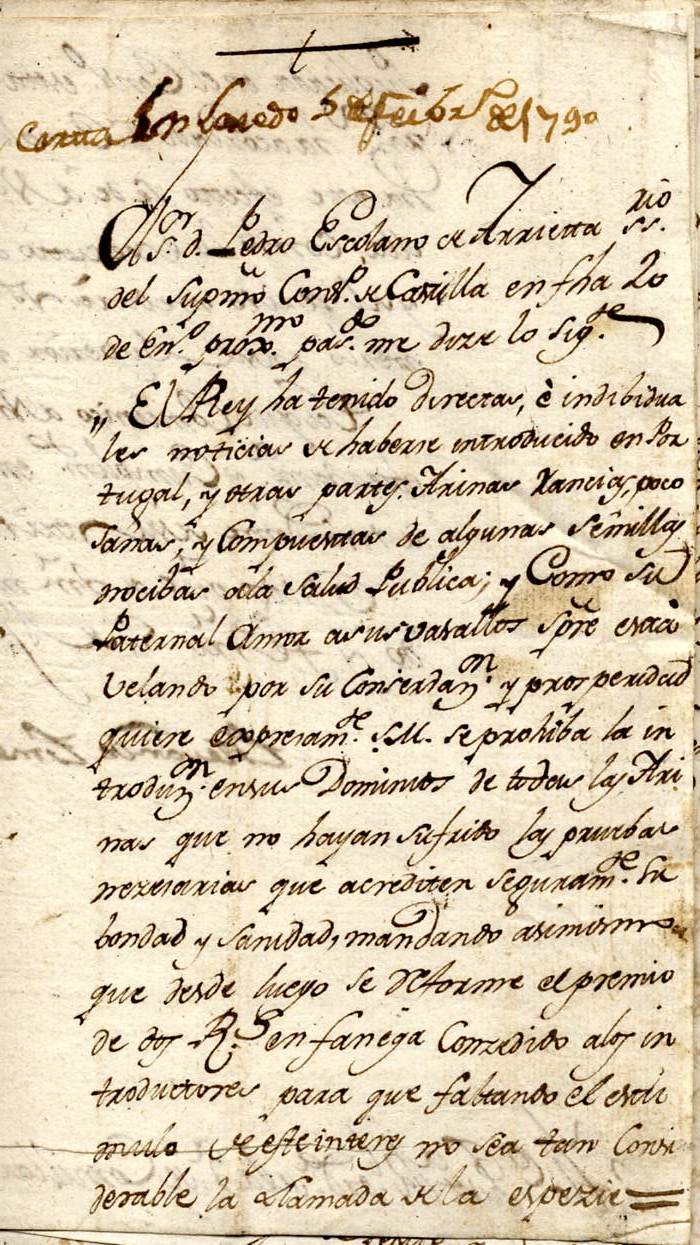 Carta En Laredo 5 de Febr.o de 1790
El S.or d. Pedro Escolano de Arrietta ss.rio
del Supmo Cons.o de Castilla en fha 20
de En.o prox.mo pas.do me dize lo sig.te
„ El Rey ha tenido directas, è indibidua
les noticias de haberse introducido en Por
tugal, y otras partes Arinas Rancias, poco
sanas, y Compuestas de algunas semillas
nocibas a la Salud Publica; y Como su
Paternal Amor a sus vasallos spre está
velando por su Conserbaz.n y prosperidad
quiere expresam.te S.M. se prohiba la in
troduz.n en sus Dominios de todas las Ari
nas que no hayan sufrido las pruebas
nezesarias que acrediten seguram.te su
bondad y sanidad, mandando asimismo
que desde luego se deforme el premio
de dos R.s en fanega Conzedido a los in
troductores para que faltando el esti
mulo de este interes no sea tan Consi
derable la llamada de la espezie =